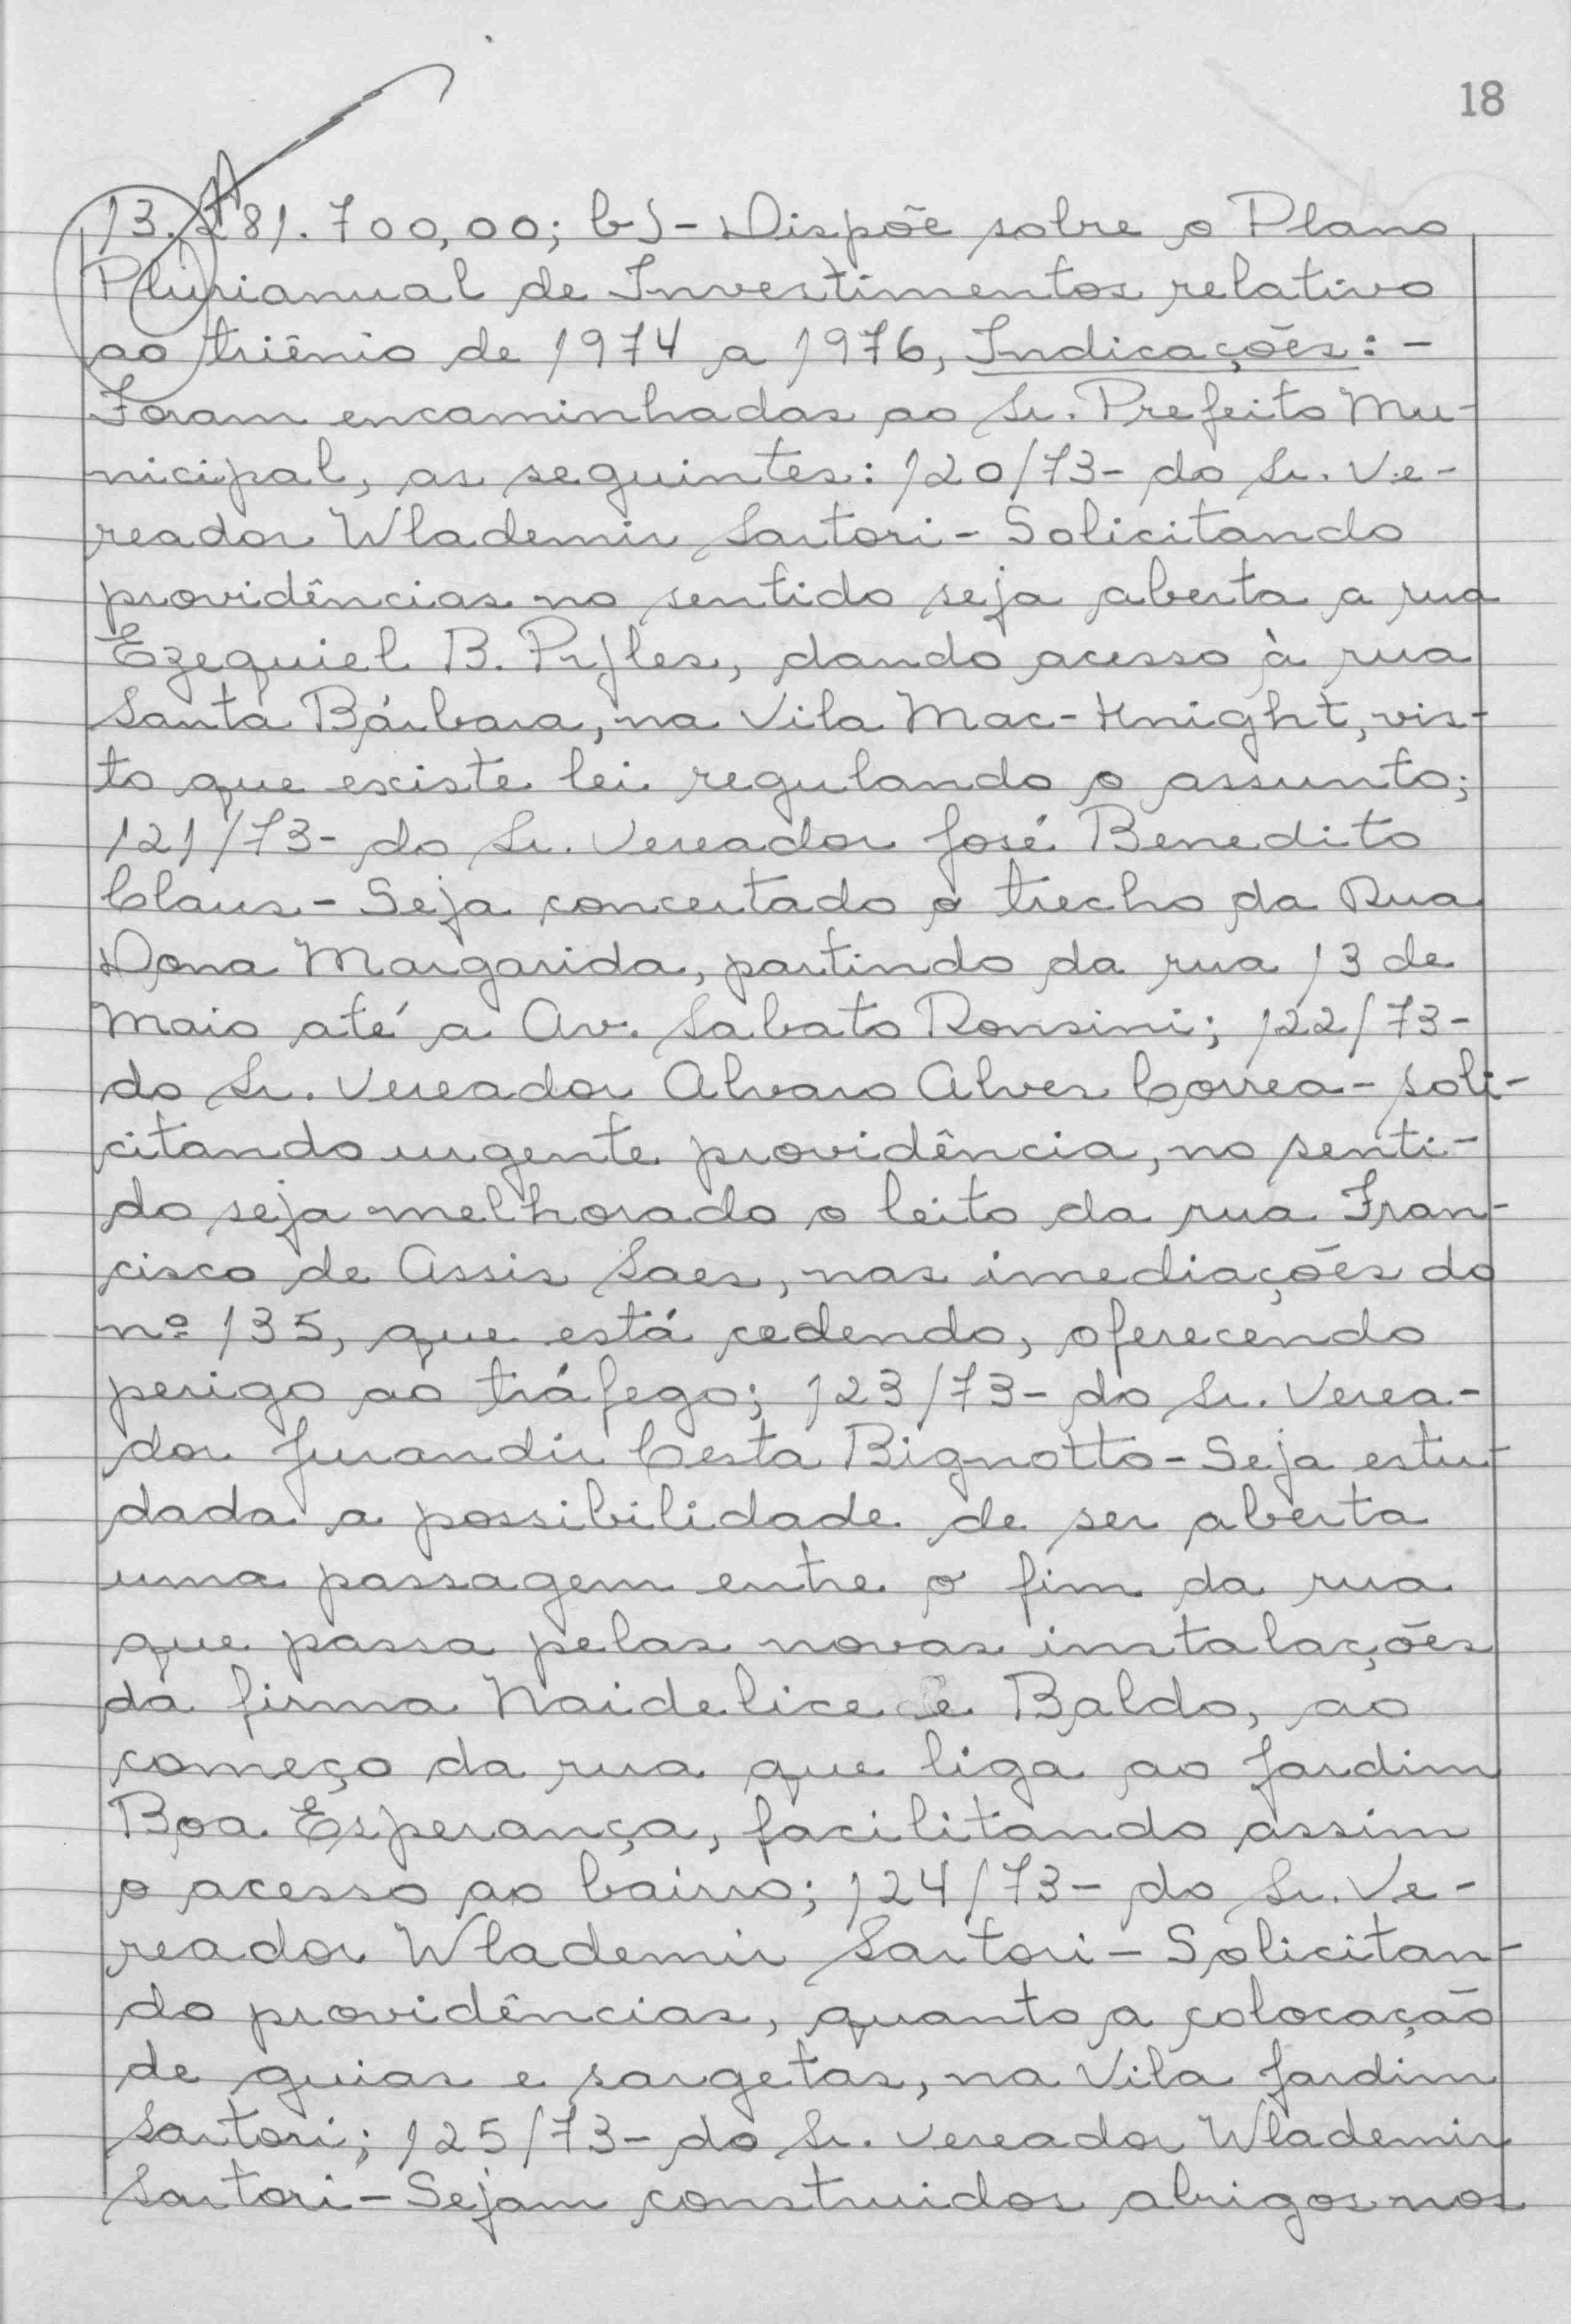 18
13.281.700,00; b)- Dispõe sobre o Plano
Plurianual de Investimentos relativo
ao triênio de 1974 a 1976, Indicações: -
Foram encaminhadas ao Sr. Prefeito Mu-
nicipal, as seguintes: 120/73- do Sr. Ve-
reador Wlademir Sartori - Solicitando
providências no sentido seja aberta a rua
Ezequiel B. Pyles, dando acesso à rua
Santa Bárbara, na Vila Mac-Knight, vis-
to que existe lei regulando o assunto;
121/73- do Sr. Vereador José Benedito
Claus - Seja concertado o trecho da Rua
Dona Margarida, partindo da rua 13 de
Maio até a Av. Sabato Ronsini; 122/73-
do Sr. Vereador Alvaro Alves Correa - soli-
citando urgente providência, no senti-
do seja melhorado o leito da rua Fran-
cisco de Assis Saes, nas imediações do
nº 135, que está cedendo, oferecendo
perigo ao tráfego; 123/73- do Sr. Verea-
dor Jurandir Certa Bignotto - Seja estu-
dada a possibilidade de ser aberta
uma passagem entre o fim da rua
que passa pelas novas instalações
da firma Naidelice e Baldo, ao
começo da rua que liga ao Jardim
Boa Esperança, facilitando assim
o acesso ao bairro; 124/73- do Sr. Ve-
reador Wlademir Sartori - Solicitan-
do providências, quanto a colocação
de guias e sargetas, na Vila Jardim
Sartori; 125/73- do Sr. Vereador Wlademir
Sartori - Sejam construidos abrigos nos